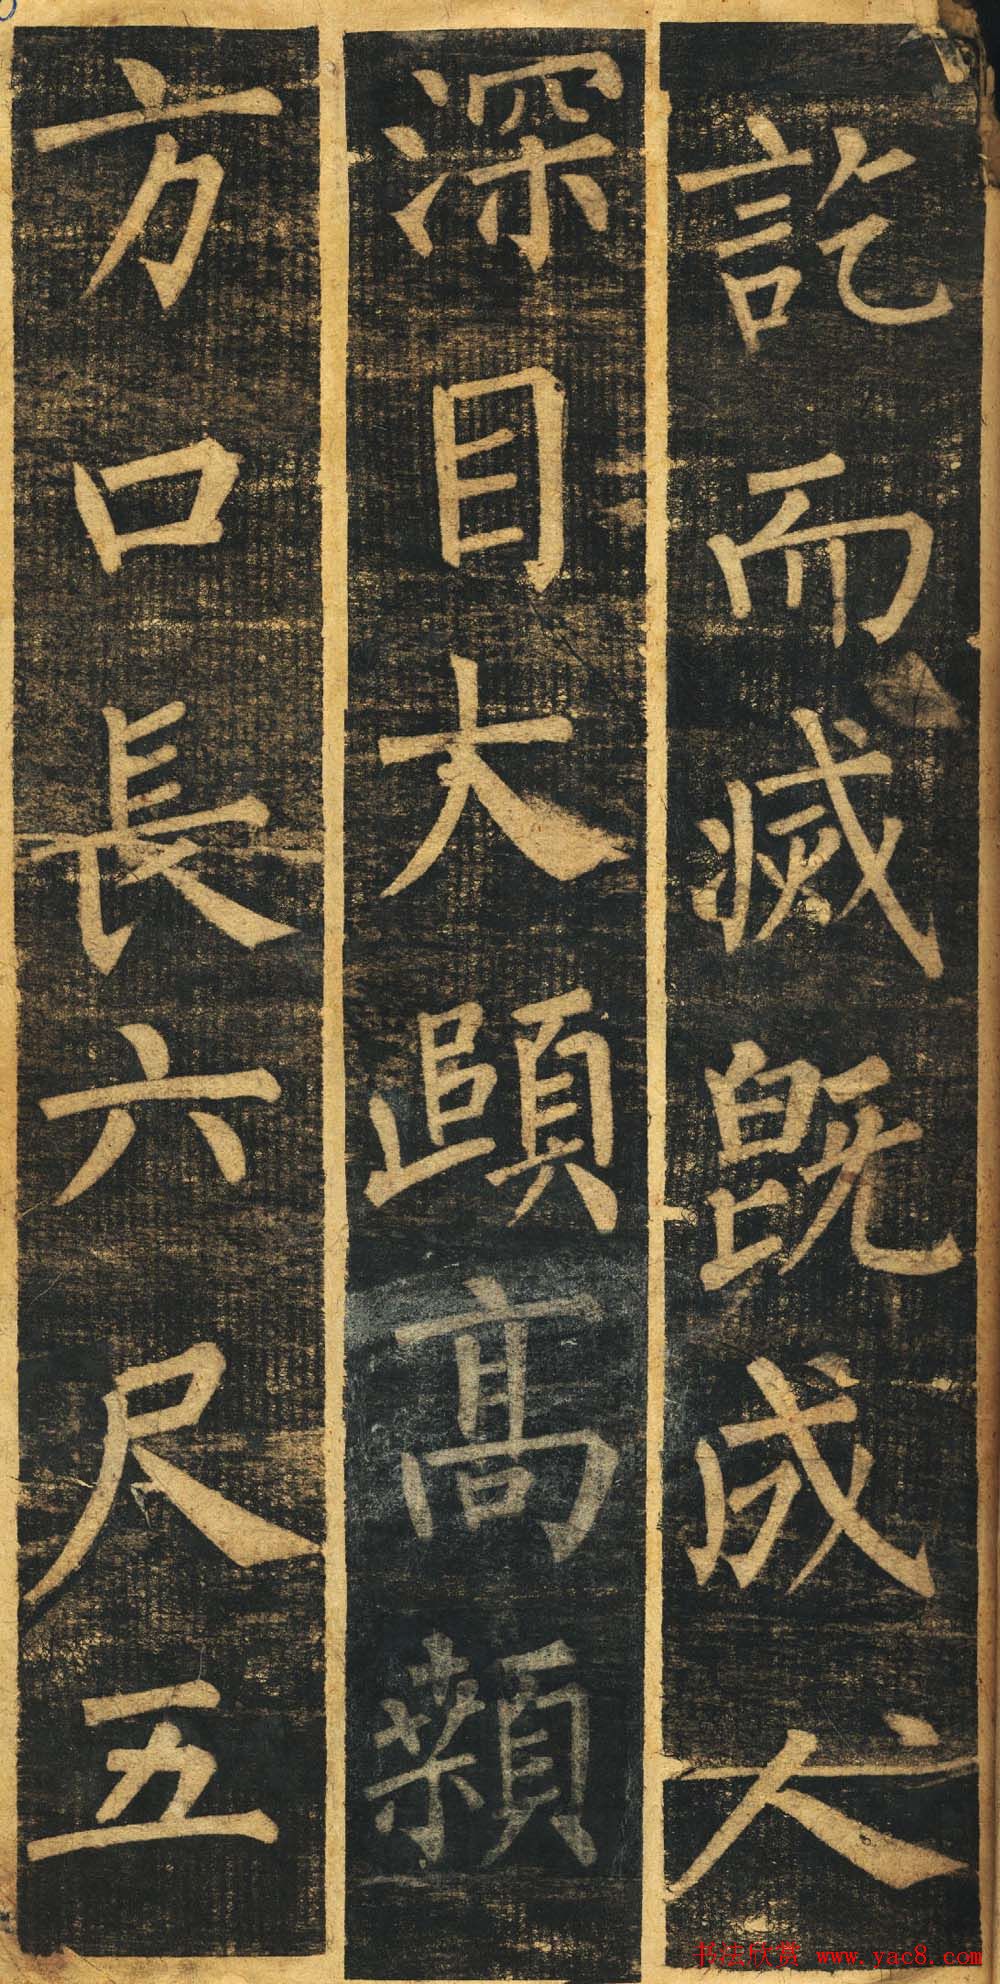 訖而滅既成人
深目大頤高顙
方口長六尺五
书法欣赏 www.yac8.com